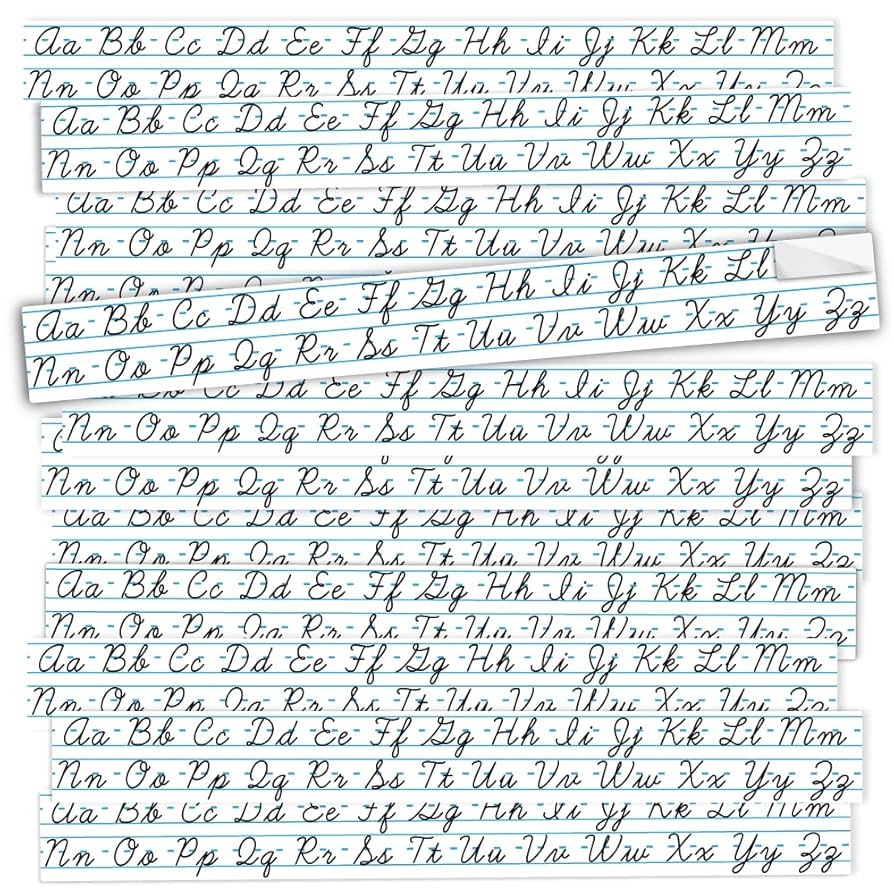 Aa Bb Cc Dd Ee Ff Gg Hh Ii Jj Kk Ll Mm
Nn Oo Pp Qq Rr Ss Tt Uu Vv Ww Xx Yy Zz
Aa Bb Cc Dd Ee Ff Gg Hh Ii Jj Kk Ll Mm
Nn Oo Pp Qq Rr Ss Tt Uu Vv Ww Xx Yy Zz
Aa Bb Cc Dd Ee Ff Gg Hh Ii Jj Kk Ll Mm
Nn Oo Pp Qq Rr Ss Tt Uu Vv Ww Xx Yy Zz
Nn Oo Pp Qq Rr
Aa Bb Cc Dd Ee Ff Gg Hh Ii Jj Kk Ll
Nn Oo Pp Qq Rr Ss Tt Uu Vv Ww Xx Yy Zz
Cc Dd Ee Ff Gg Hh Ii Jj Kk Ll Mm
Nn Oo Pp Qq Rr Ss Tt Uu Vv Ww Xx Yy Zz
Nn Oo Pp Qq Rr Ss Tt Uu Vv Ww Xx Yy Zz
Aa Bb Cc Dd Ee Ff Gg Hh Ii Jj Kk Ll Mm
Nn Oo Pp Qq Rr Ss Tt Uu Vv Ww Xx Yy Zz
Aa Bb Cc Dd Ee Ff Gg Hh Ii Jj Kk Ll Mm
Nn Oo Pp Qq Rr Ss Tt Uu Vv Ww Xx Yy Zz
Aa Bb Cc Dd Ee Ff Gg Hh Ii Jj Kk Ll Mm
Nn Oo Pp Qq Rr Ss Tt Uu Vv Ww Xx Yy Zz
Aa Bb Cc Dd Ee Ff Gg Hh Ii Jj Kk Ll Mm
Nn Oo Pp Qq Rr Ss Tt Uu Vv Ww Xx Yy Zz
Aa Bb Cc Dd Ee Ff Gg Hh Ii Jj Kk Ll Mm
Nn Oo Pp Qq Rr Ss Tt Uu Vv Ww Xx Yy Zz